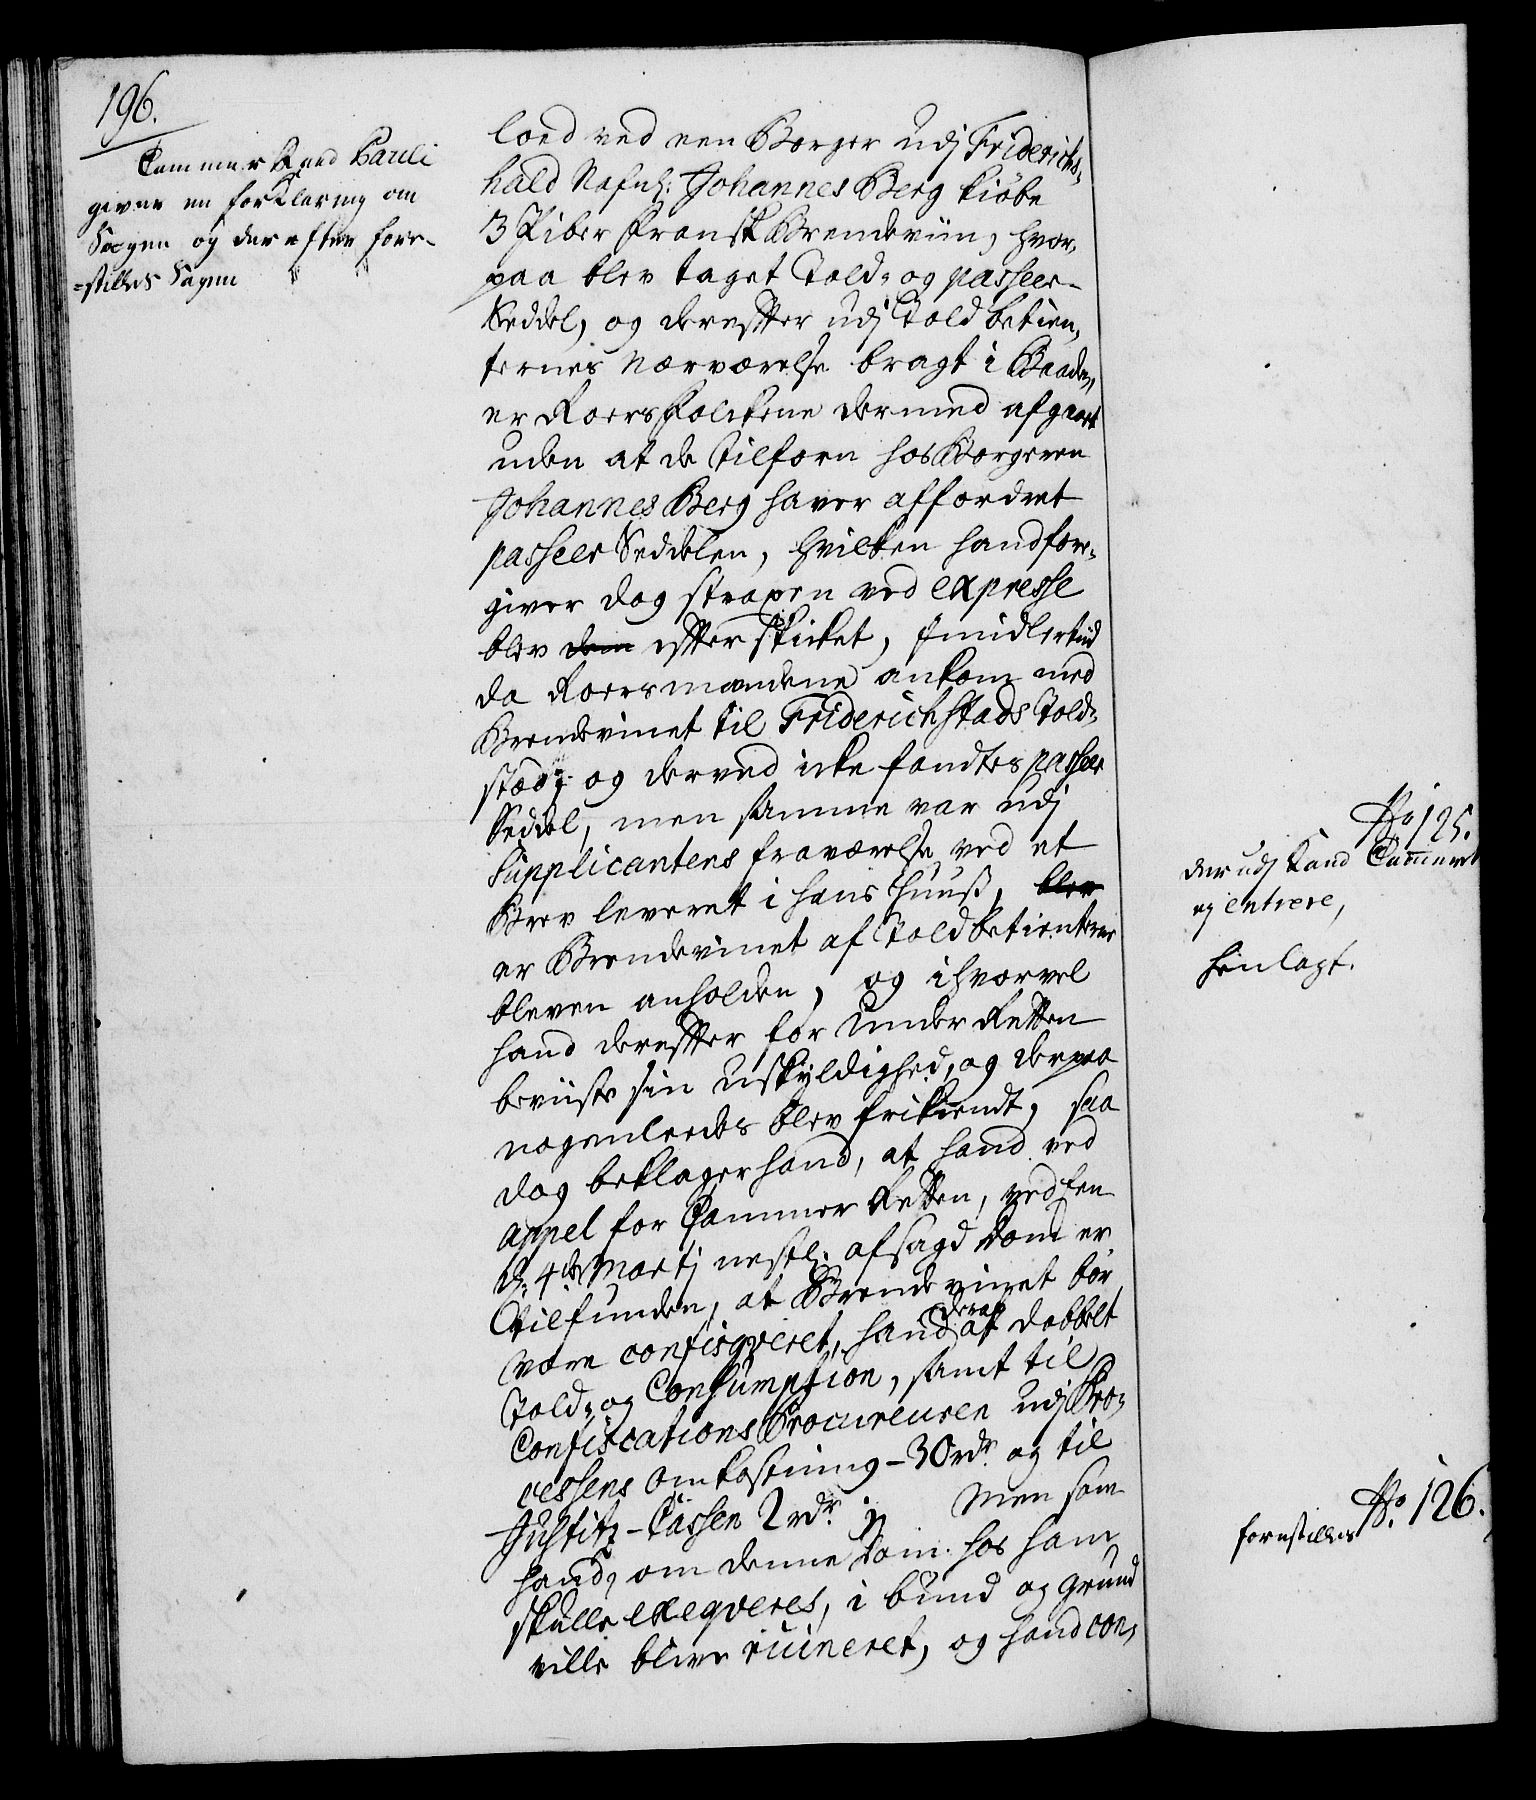 196.
Cammer Raad Pauli
giver en forklaring om
Sagen og derefter fore-
=stilles Sagen
loed ved een Borger udj Friderichs-
hald Nafnl: Johannes Berg kiøbe
3 Piber Fransk Brendeviin, hvor-
paa blev taget Told- og passeer-
Seddel, og derefter udj Told betien-
ternes nærværelse bragt i Baaden,
er Roers Folckene dermed afgaaet
uden at de tilforn hos Borgeren
Johannes Berg haver affordret
passeer Seddelen, hvilken hand fore-
giver dog straxen ved expresse
blev dem efterskicket, Imidlertiid
da Roersmændene ankom med
Brendevinet til Friderichstads Told-
stæd, og derved icke fandtes passeer
Seddel, men samme var udj
Supplicantens fraværelse ved et
Brev leveret i hans Huuß, blev
er Brendevinet af Toldbetienterne
bleven anholden, og ihvorvel
hand derefter for Under Retten
beviiste sin uskyldighed, og derpaa
nogenleedes blev frikiendt, saa
dog beklager hand, at hand ved
appel for Cammer Retten, ved een
d: 4de Martj nestl: afsagd Dom er
tilfunden, at Brendevinet bør
være confisqveret, hand deraf at dobbelt
Told- og Consumption, samt til
Confiscations Procureuren udj Pro-
cessens omkostning - 30 rdr. og til
Justitz-Cassen 2 rdr. Men som
hand, om denne Dom hos ham
skulle exeqveres, i bund og grund
ville blive ruineret, og hand con-
No 125.
der udj kand Cammeret
ej entrere,
henlagt.
No. 126.
forestilles